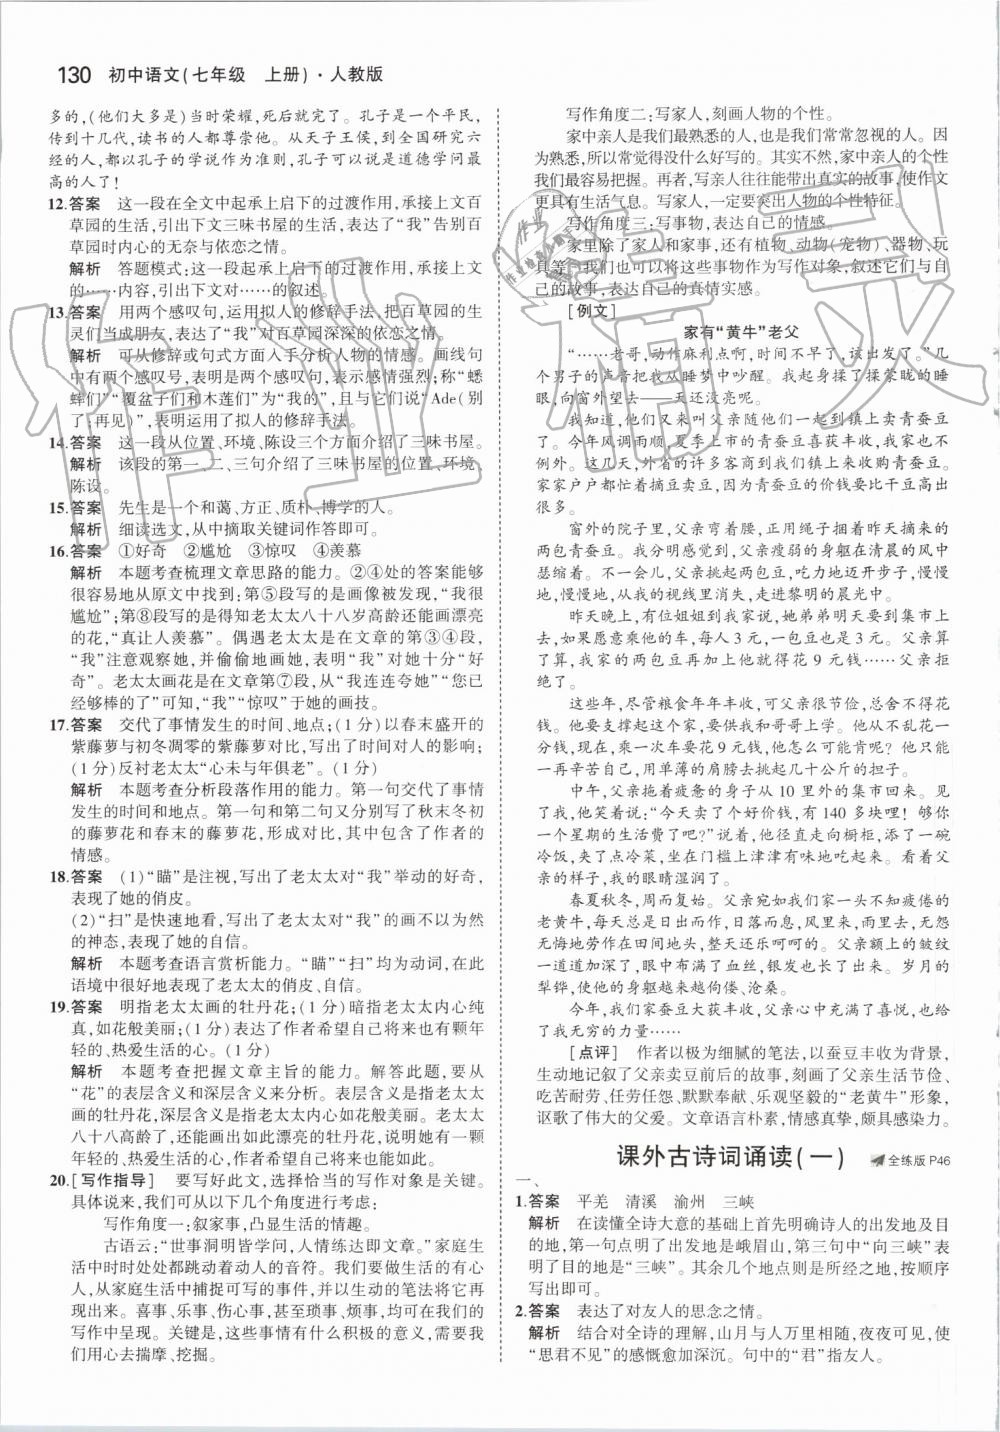 130 初中语文(七年级 上册)·人教版
多的,(他们大多是)当时荣耀,死后就完了。孔子是一个平民,
传到十几代,读书的人都尊崇他。从天子王侯,到全国研究六
经的人,都以孔子的学说作为准则,孔子可以说是道德学问最
高的人了!
12.答案 这一段在全文中起承上启下的过渡作用,承接上文百
草园的生活,引出下文三味书屋的生活,表达了“我”告别百
草园时内心的无奈与依恋之情。
解析 答题模式:这一段起承上启下的过渡作用,承接上文
的……内容,引出下文对……的叙述。
13.答案 用两个感叹句,运用拟人的修辞手法,把百草园的生
灵们当成朋友,表达了“我”对百草园深深的依恋之情。
解析 可从修辞或句式方面入手分析人物的情感。画线句
中有两个感叹号,表明是两个感叹句,表示感情强烈;称“蟋
蟀们”“覆盆子们和木莲们”为“我的”,且与它们说“Ade(别
了;再见)”,表明运用了拟人的修辞手法。
14.答案 这一段从位置、环境、陈设三个方面介绍了三味书屋。
解析 该段的第一、二、三句介绍了三味书屋的位置、环境、
陈设。
15.答案 先生是一个和蔼、方正、质朴、博学的人。
解析 细读选文,从中摘取关键词作答即可。
16.答案 ①好奇 ②尴尬 ③惊叹 ④羡慕
解析 本题考查梳理文章思路的能力。②④处的答案能够
很容易地从原文中找到:第⑤段写的是画像被发现,“我很
尴尬”;第⑧段写的是得知老太太八十八岁高龄还能画漂亮
的花,“真让人羡慕”。偶遇老太太是在文章的第③④段,
“我”注意观察她,并偷偷地画她,表明“我”对她十分“好
奇”。老太太画花是在文章第⑦段,从“我连连夸她”“您已
经够棒的了”可知,“我”“惊叹”于她的画技。
17.答案 交代了事情发生的时间、地点;(1分)以春末盛开的
紫藤萝与初冬凋零的紫藤萝对比,写出了时间对人的影响;
(1分)反衬老太太“心未与年俱老”。(1分)
解析 本题考查分析段落作用的能力。第一句交代了事情
发生的时间和地点。第一句和第二句又分别写了秋末冬初
的藤萝花和春末的藤萝花,形成对比,其中包含了作者的
情感。
18.答案 (1)“瞄”是注视,写出了老太太对“我”举动的好奇,
表现了她的俏皮。
(2)“扫”是快速地看,写出了老太太对“我”的画不以为然
的神态,表现了她的自信。
解析 本题考查语言赏析能力。“瞄”“扫”均为动词,在此
语境中很好地表现了老太太的俏皮、自信。
19.答案 明指老太太画的牡丹花;(1分)暗指老太太内心纯
真,如花般美丽;(1分)表达了作者希望自己将来也有颗年
轻的、热爱生活的心。(1分)
解析 本题考查把握文章主旨的能力。解答此题,要从
“花”的表层含义和深层含义来分析。表层含义是指老太太
画的牡丹花,深层含义是指老太太内心如花般美丽。老太太
八十八高龄了,还能画出如此漂亮的牡丹花,说明她有一颗
年轻的、热爱生活的心,作者希望自己将来也是如此。
20.[写作指导] 要写好此文,选择恰当的写作对象是关键。
具体说来,可以从以下几个角度进行考虑:
写作角度一:叙家事,凸显生活的情趣。
古语云:“世事洞明皆学问,人情练达即文章。”家庭生
活中时时处处都跳动着动人的音符。我们要做生活的有心
人,从家庭生活中捕捉可写的事件,并以生动的笔法将它再
现出来。喜事、乐事、伤心事,甚至琐事、烦事,均可在我们的
写作中呈现。关键是,这些事情有什么积极的意义,需要我
们用心去揣摩、挖掘。
写作角度二:写家人,刻画人物的个性。
家中亲人是我们最熟悉的人,也是我们常常忽视的人。因
为熟悉,所以常觉得没什么好写的。其实不然,家中亲人的个性
我们最容易把握。再者,写亲人往往能带出真实的故事,使作文
更具有生活气息。写家人,一定要突出人物的个性特征。
写作角度三:写事物,表达自己的情感。
家里除了家人和家事,还有植物、动物(宠物)、器物、玩
具等,我们也可以将这些事物作为写作对象,叙述它们与自
己的故事,表达自己的真情实感。
[例文]
家有“黄牛”老父
“……老哥,动作麻利点啊,时间不早了,该出发了。”几
个男子的声音把我从睡梦中吵醒。我揉了揉蒙眬的睡
眼,向窗外望去——天还没亮呢。
我知道,他们又来叫父亲随他们一起到镇上卖青蚕豆
了。今年风调雨顺,夏季上市的青蚕豆喜获丰收,我家也不
例外。这几天,外省的许多客商到我们镇上来收青蚕豆。
家家户户都忙着摘卖豆,因为青蚕豆的价钱要比干豆高出
很多。
窗外的院子里,父亲弯着腰,正用绳子捆着昨天摘回来
的两包青蚕豆。我分明感觉到,父亲瘦弱的身躯在清晨的风中
瑟缩着。不一会儿,父亲挑起两包豆,吃力地迈开步子,慢慢
地,慢慢地,从我的视线里消失,走进黎明的晨光中。
昨天晚上,有位姐姐到我家说,她弟弟明天要到集市上
去,如果愿意乘他的车,每人3元,一包豆也是3元。父亲算
了算,我家的两包豆再加上他就得花9元钱……父亲拒
绝了。
这些年,尽管粮食年年丰收,可父亲很节俭,总舍不得花
钱。他要支撑起这个家,要供我和哥哥上学。他从不乱花一
分钱,现在,乘一次车要花9元钱,他怎么可能肯呢?他只能
一再辛苦自己,用单薄的肩膀去挑起几十公斤的担子。
中午,父亲拖着疲惫的身子从10里外的集市回来。见了
我,他笑着说:“今天卖了个好价钱,有140多块哩!够你
一个星期的生活费了吧?”说着,他径直走向橱柜,添了一碗
冷饭,夹了点冷菜,坐在门槛上津津有味地吃起来。看着父
亲的样子,我的眼睛湿润了。
春夏秋冬,周而复始。父亲宛如我们家一头不知疲倦的
老黄牛,每天总是日出而作,日落而息,风里来,雨里去,无怨
无悔地劳作在田间地头,整天还乐呵呵的。父亲额上的皱纹
一道道深了,两眼布满了血丝,银发也长了出来。岁月的
犁铧,使他的身躯越来越佝偻、沧桑。
今年,我们家蚕豆又大丰收,父亲心中充满了喜悦,也给
了我无穷的力量……
[点评] 作者以极为细腻的笔法,以蚕豆丰收为背景,
生动地记叙了父亲卖豆前后的故事,赞颂了父亲生活节俭、
吃苦耐劳、任劳任怨、默默奉献、乐观坚毅的“老黄牛”形象,
讴歌了伟大的父爱。文章语言朴素,情感真挚,颇具感染力。
课外古诗词诵读(一) 全练版 P46
一、
1.答案 平羌 清溪 渝州 三峡
解析 在读懂全诗大意的基础上首先明确诗人的出发地及目
的地,第一句点明了出发地是峨眉山,第三句中“向三峡”表
明了目的地是“三峡”。其余几个地点则是所经之地,按顺序
写出即可。
2.答案 表达了对友人的思念之情。
解析 结合对全诗的理解,山月与人万里相伴,夜夜可见,使
“思君不见”的感慨愈加深沉。句中的“君”指友人。
作业精灵